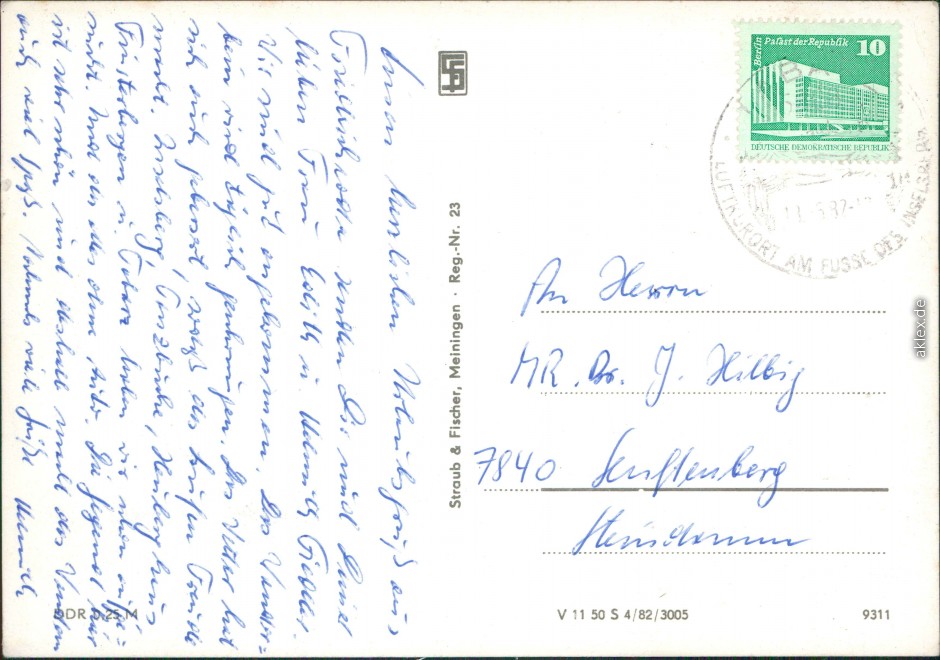 Einen herzlichen Urlaubsgruß aus
Friedrichroda senden Dir und Deiner
lieben Frau Edith u. Helmuth Fiedler.
Wir sind gut angekommen. Das Wander-
bein wird täglich geschwungen. Das Wetter hat
sich auch gebessert, sodaß das Laufen Freude
macht. Inselsberg, Tanzbuche, Heuberghaus
Finsterbergen u. Tabarz haben wir schon aufge=
sucht. Und das alles ohne Auto. Die Gegend hier
ist sehr schön und deshalb macht das Wandern
auch viel Spaß. viele Grüße Helmuth
DDR 0,25 M
Straub & Fischer, Meiningen · Reg.-Nr. 23
Berlin
Palast der Republik
10
DEUTSCHE DEMOKRATISCHE REPUBLIK
LUFTKURORT AM FUSSE DES INSELSBERG
An Herrn
MR. Dr. J. Hilbig
7840 Senftenberg
Steindamm
V 11 50 S 4/82/3005
9311
aklex.de